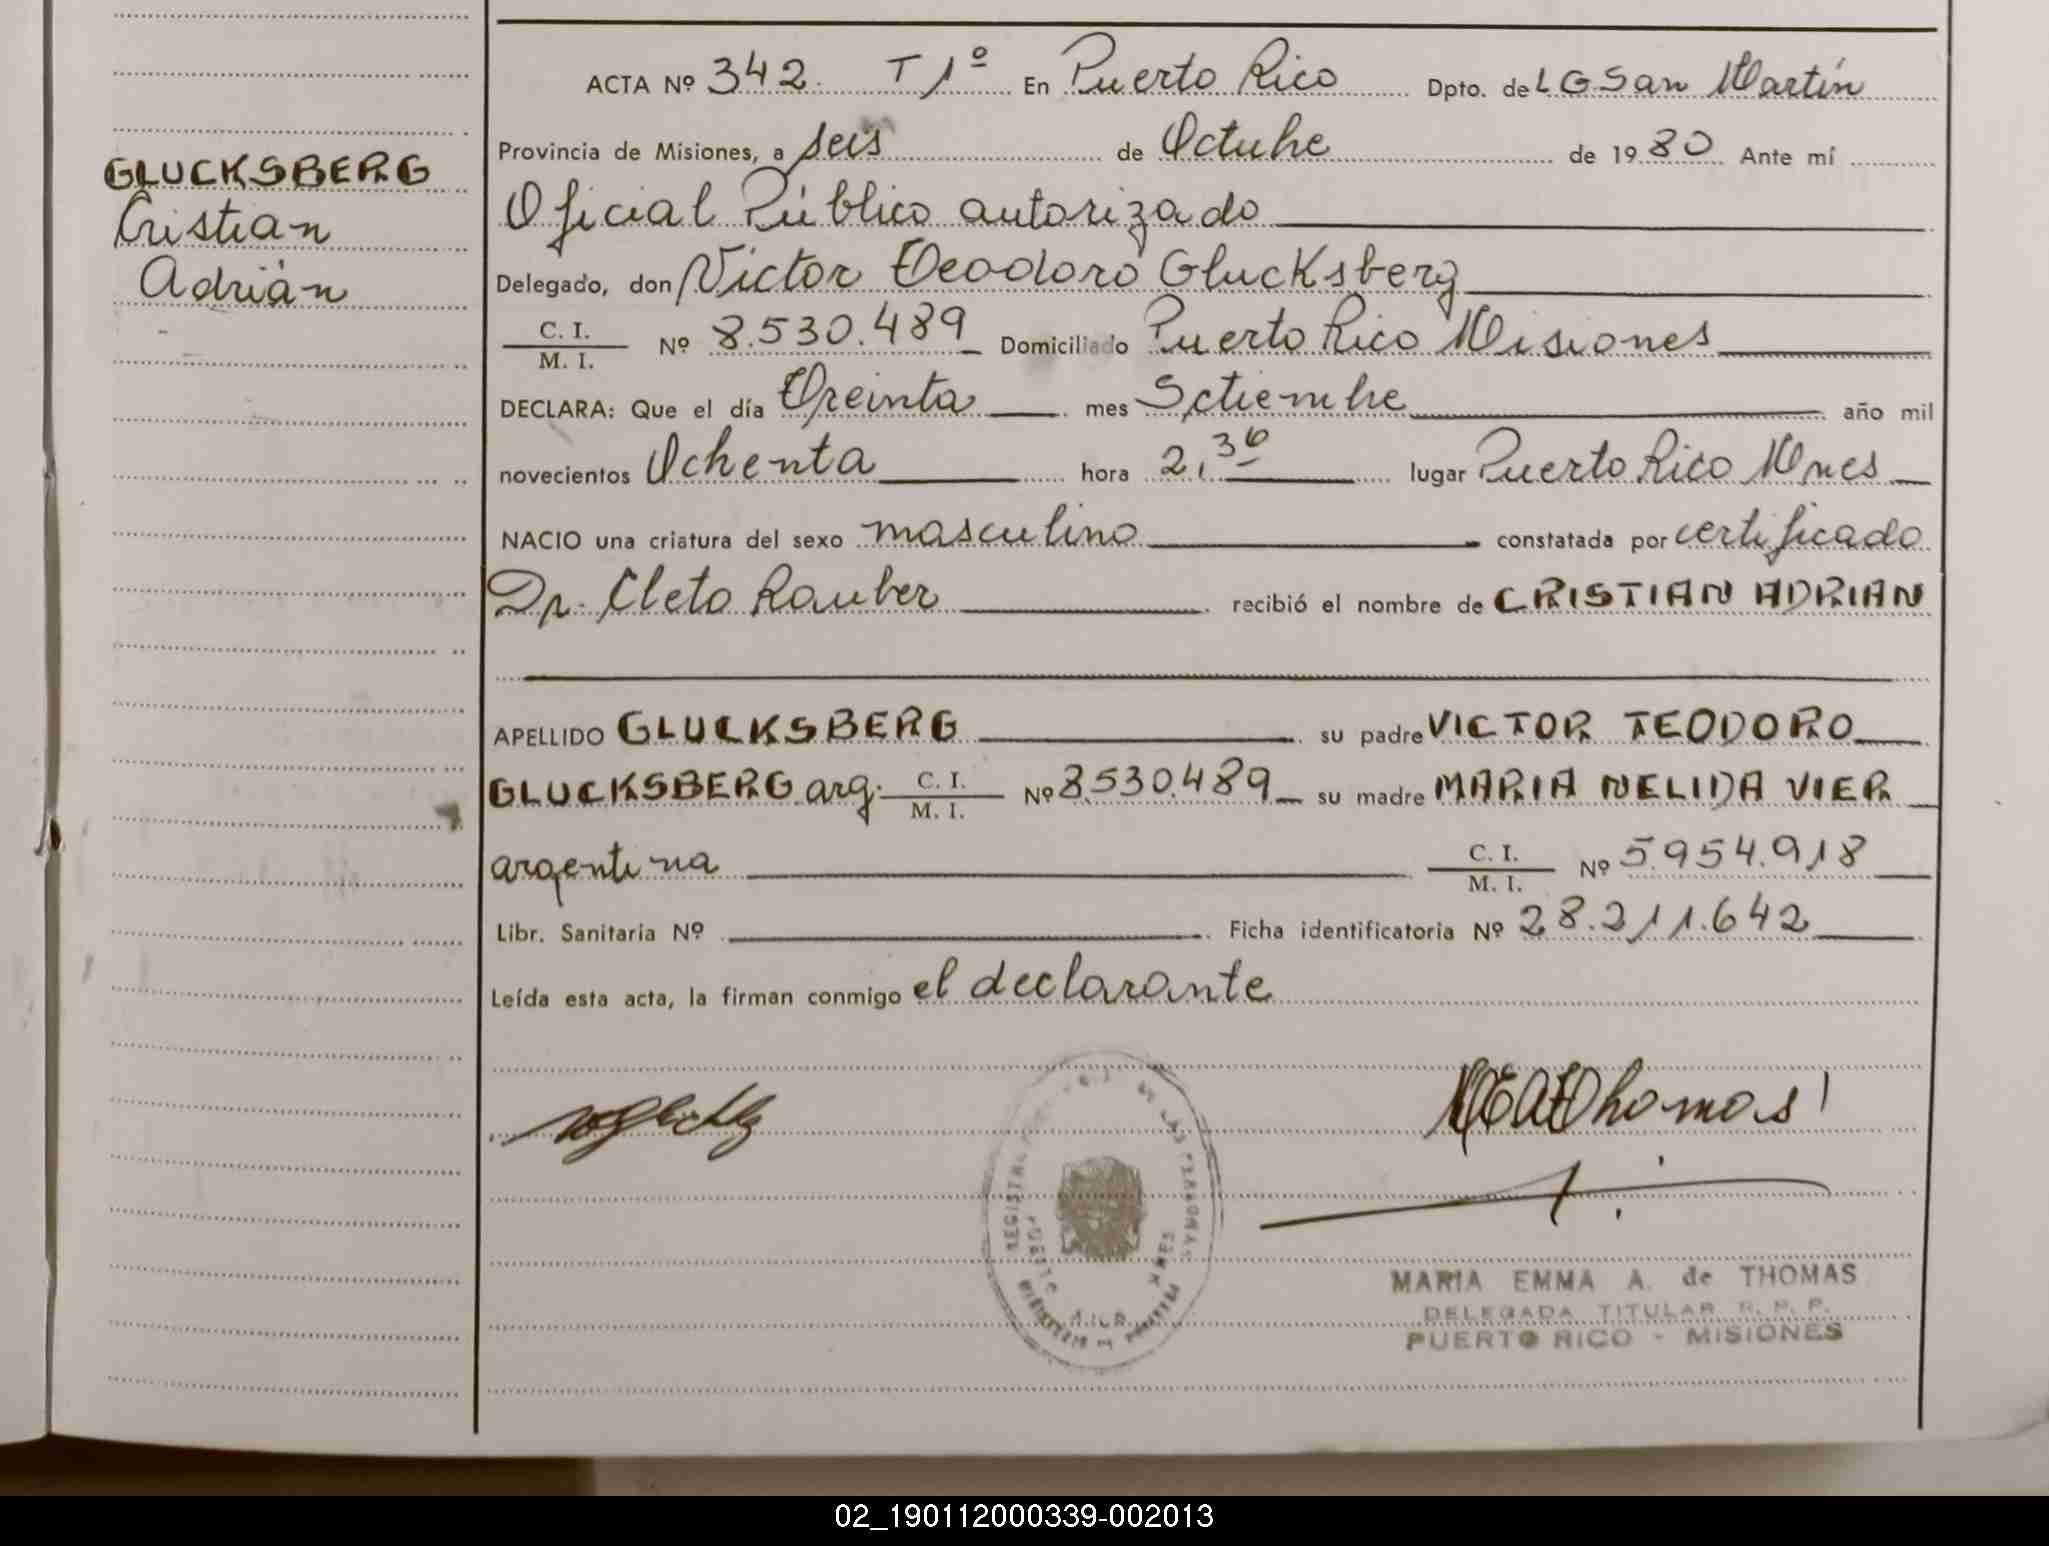 GLUCKSBERG
Cristian
Adrián
ACTA Nº 342. T 1º En Puerto Rico Dpto. de L G San Martín
Provincia de Misiones, a seis de Octubre de 1980 Ante mí
Oficial Público autorizado
Delegado, don Víctor Teodoro Glucksberg
C. I.
M. I. Nº 8.530.489 Domiciliado Puerto Rico Misiones
DECLARA: Que el día Treinta mes Setiembre año mil
novecientos Ochenta hora 2,30 lugar Puerto Rico Mnes
NACIO una criatura del sexo masculino constatada por certificado
Dr. Cleto Rauber recibió el nombre de CRISTIAN ADRIAN
APELLIDO GLUCKSBERG su padre VICTOR TEODORO
GLUCKSBERG arg. C. I. M. I. Nº 8.530.489 su madre MARIA NELIDA VIER
argentina C. I. M. I. Nº 5.954.918
Libr. Sanitaria Nº Ficha identificatoria Nº 28.211.642
Leída esta acta, la firman conmigo el declarante
MEAThomas
REGISTRO DE LAS PERSONAS
MARIA EMMA A. de THOMAS
DELEGADA TITULAR R. P. P.
PUERTO RICO - MISIONES
02_190112000339-002013